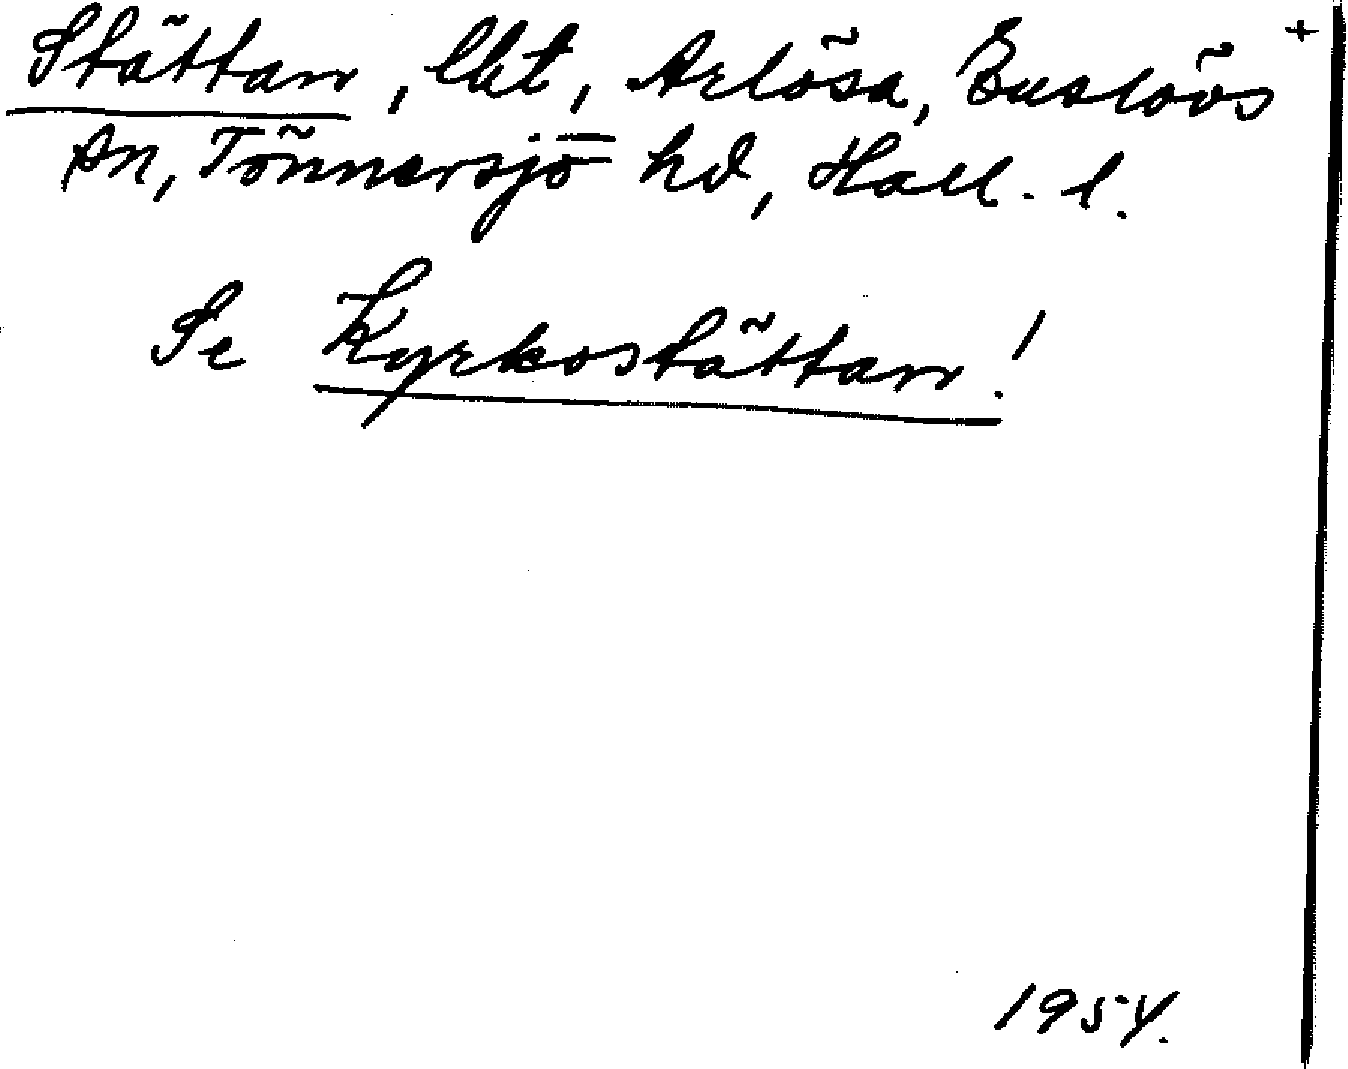 Stättan, lht, Arlösa, Enslövs +
sn, Tönnersjö hd, Hall. l.
Se Kyrkostättan!
1954.